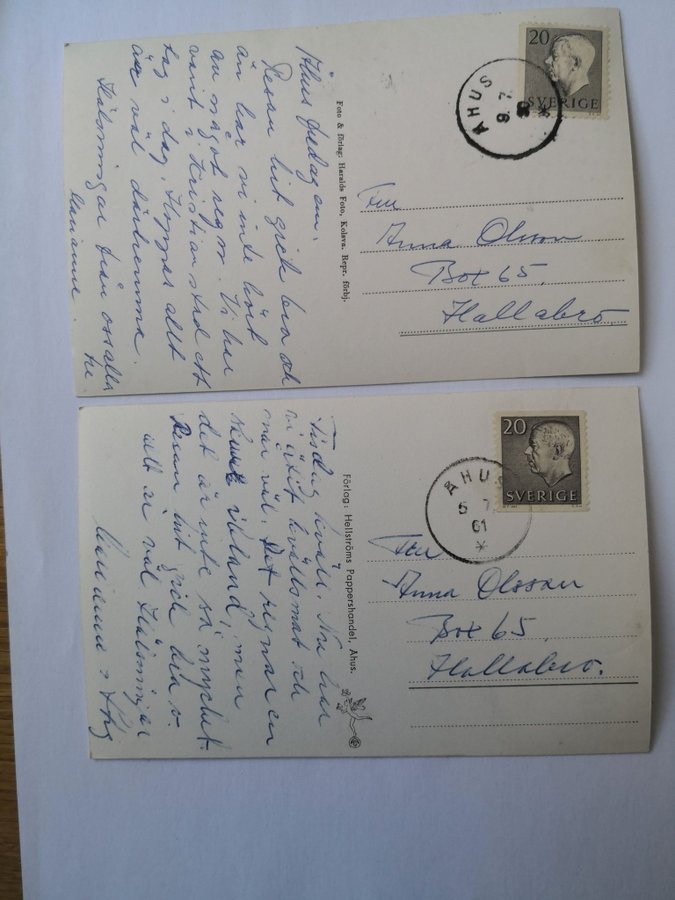 Åhus fredag em.
Resan hit gick bra och
än har vi inte haft
av något regn. Vi har
varit i Kristianstad ett
tag i dag. Hoppas allt
är väl därhemma.
Hälsningar från oss alla
tre
Marianne.
Foto & förlag: Haralds Foto, Kolsva. Repr. förbj.
20
SVERIGE
ÅHUS
Fru
Anna Olsson
Box 65,
Hallabro
Tisdag kväll. Nu har
vi ätit kvällsmat och
mår väl. Det regnar en
skur ibland, men
det är inte så mycket.
Resan hit gick bra o
allt är väl Hälsningar
Marianne o Stig
Förlag: Hellströms Pappershandel, Åhus.
20
SVERIGE
ÅHUS
5 7
61
Fru
Anna Olsson
Box 65,
Hallabro.